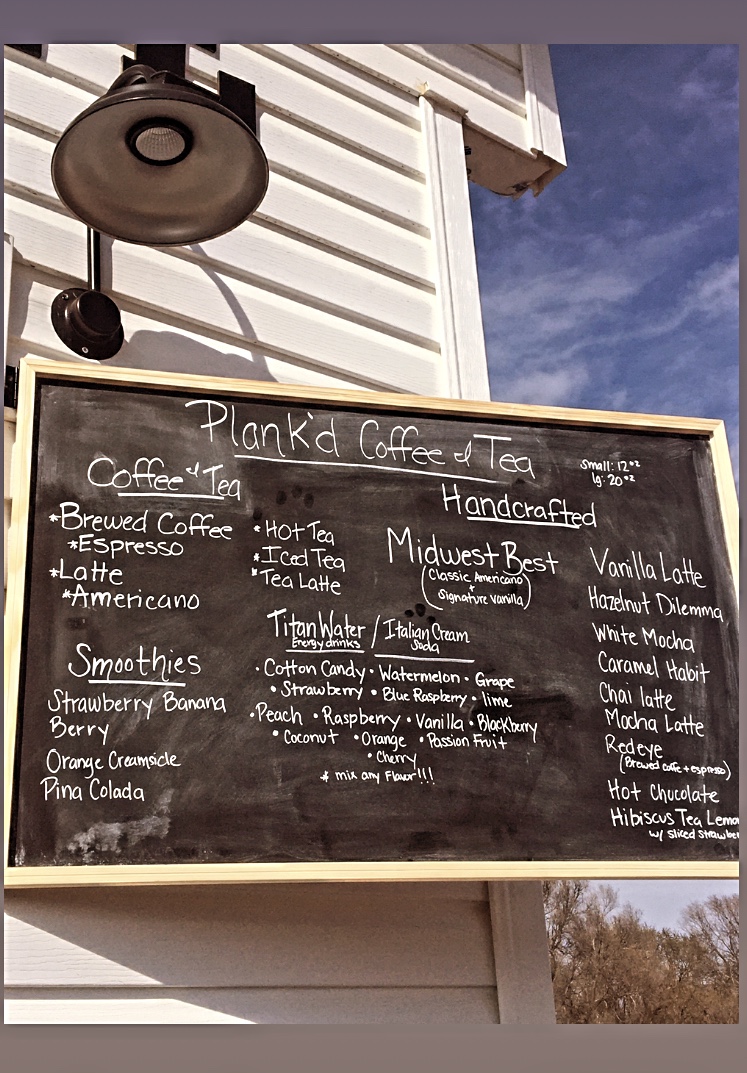 Plank'd Coffee & Tea
small: 12oz
lg: 20oz
Coffee & Tea
*Brewed Coffee
*Espresso
*Latte
*Americano
*Hot Tea
*Iced Tea
*Tea Latte
Smoothies
Strawberry Banana
Berry
Orange Creamsicle
Pina Colada
Titan Water / Italian Cream
Energy drinks
Soda
• Cotton Candy • Watermelon • Grape
• Strawberry • Blue Raspberry • lime
• Peach • Raspberry • Vanilla • Blackberry
• Coconut • Orange • Passion Fruit
• Cherry
* mix any Flavor!!!
Handcrafted
Midwest Best
(Classic Americano
+
Signature Vanilla)
Vanilla Latte
Hazelnut Dilemma
White Mocha
Caramel Habit
Chai latte
Mocha Latte
Redeye
(Brewed coffe + espresso)
Hot Chocolate
Hibiscus Tea
w/ sliced